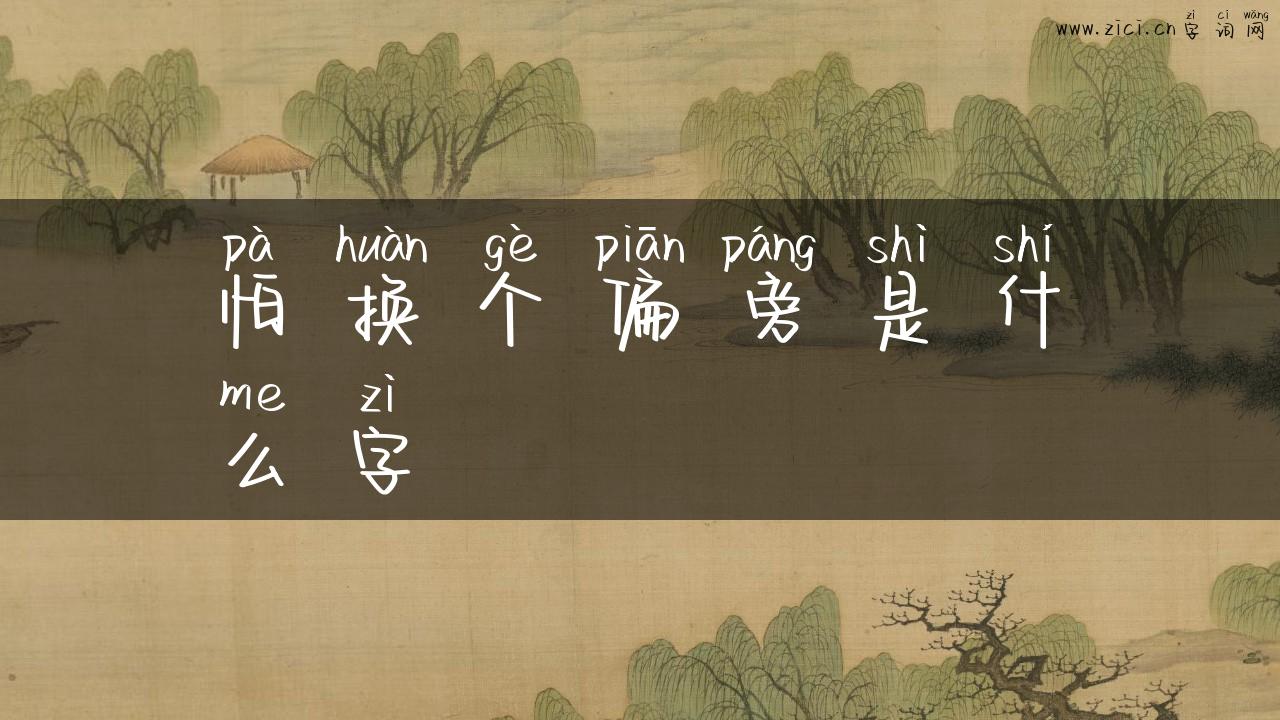 zì cí wǎng
www.zici.cn 字 词 网
pà huàn gè piān páng shì shí
怕 换 个 偏 旁 是 什
me zì
么 字